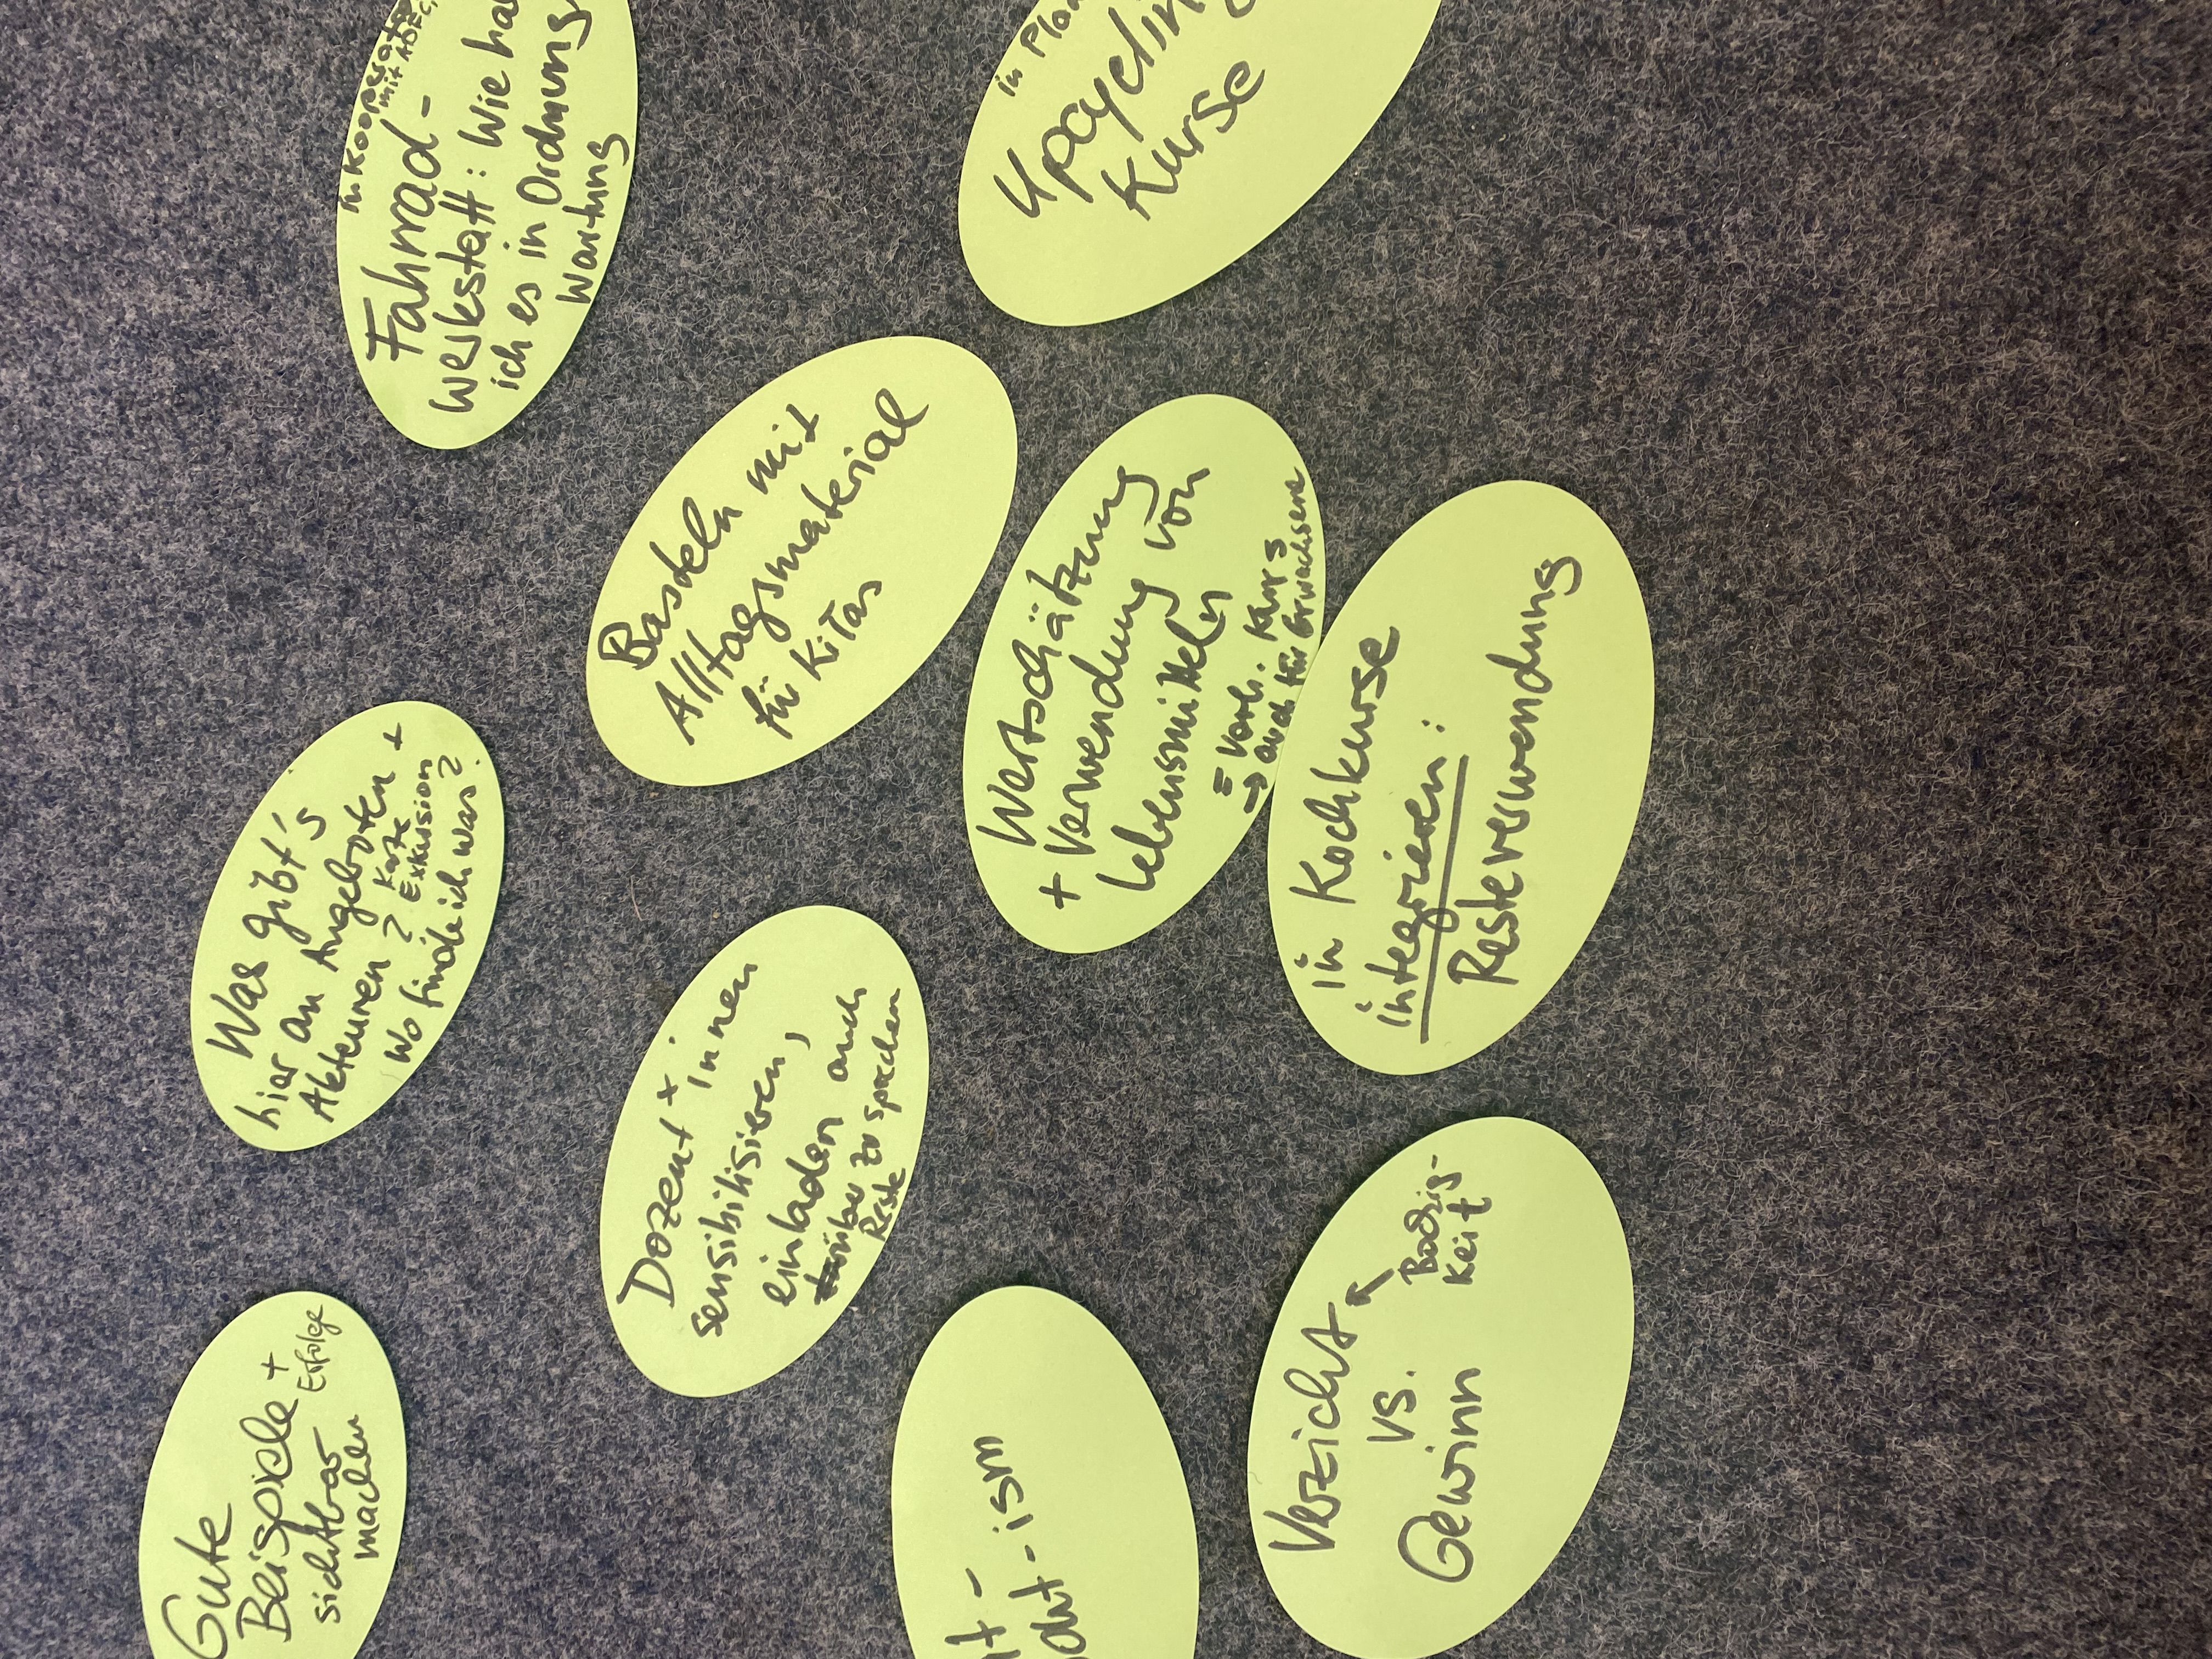 Gute
Beispiele +
sichtbar Erfolge
machen
Was gibt's
hier an Angeboten +
Akteuren? Karte
Exkursion
Wo finde ich was?
in Kooperation
mit ADFC,
Fahrrad-
werkstatt: Wie ha
ich es in Ordnung
Wartung
Dozent*innen
sensibilisieren,
einladen auch
darüber zu sprechen
Reste
Basteln mit
Alltagsmaterial
für Kitas
t-
-ism
Wertschätzung
+ Verwendung von
Lebensmitteln
= Kurs
→ auch für Erwachsene
in
Upcycling
Kurse
Verzicht
vs.
Gewinn
keit
in Kochkurse
integrieren:
Resteverwendung